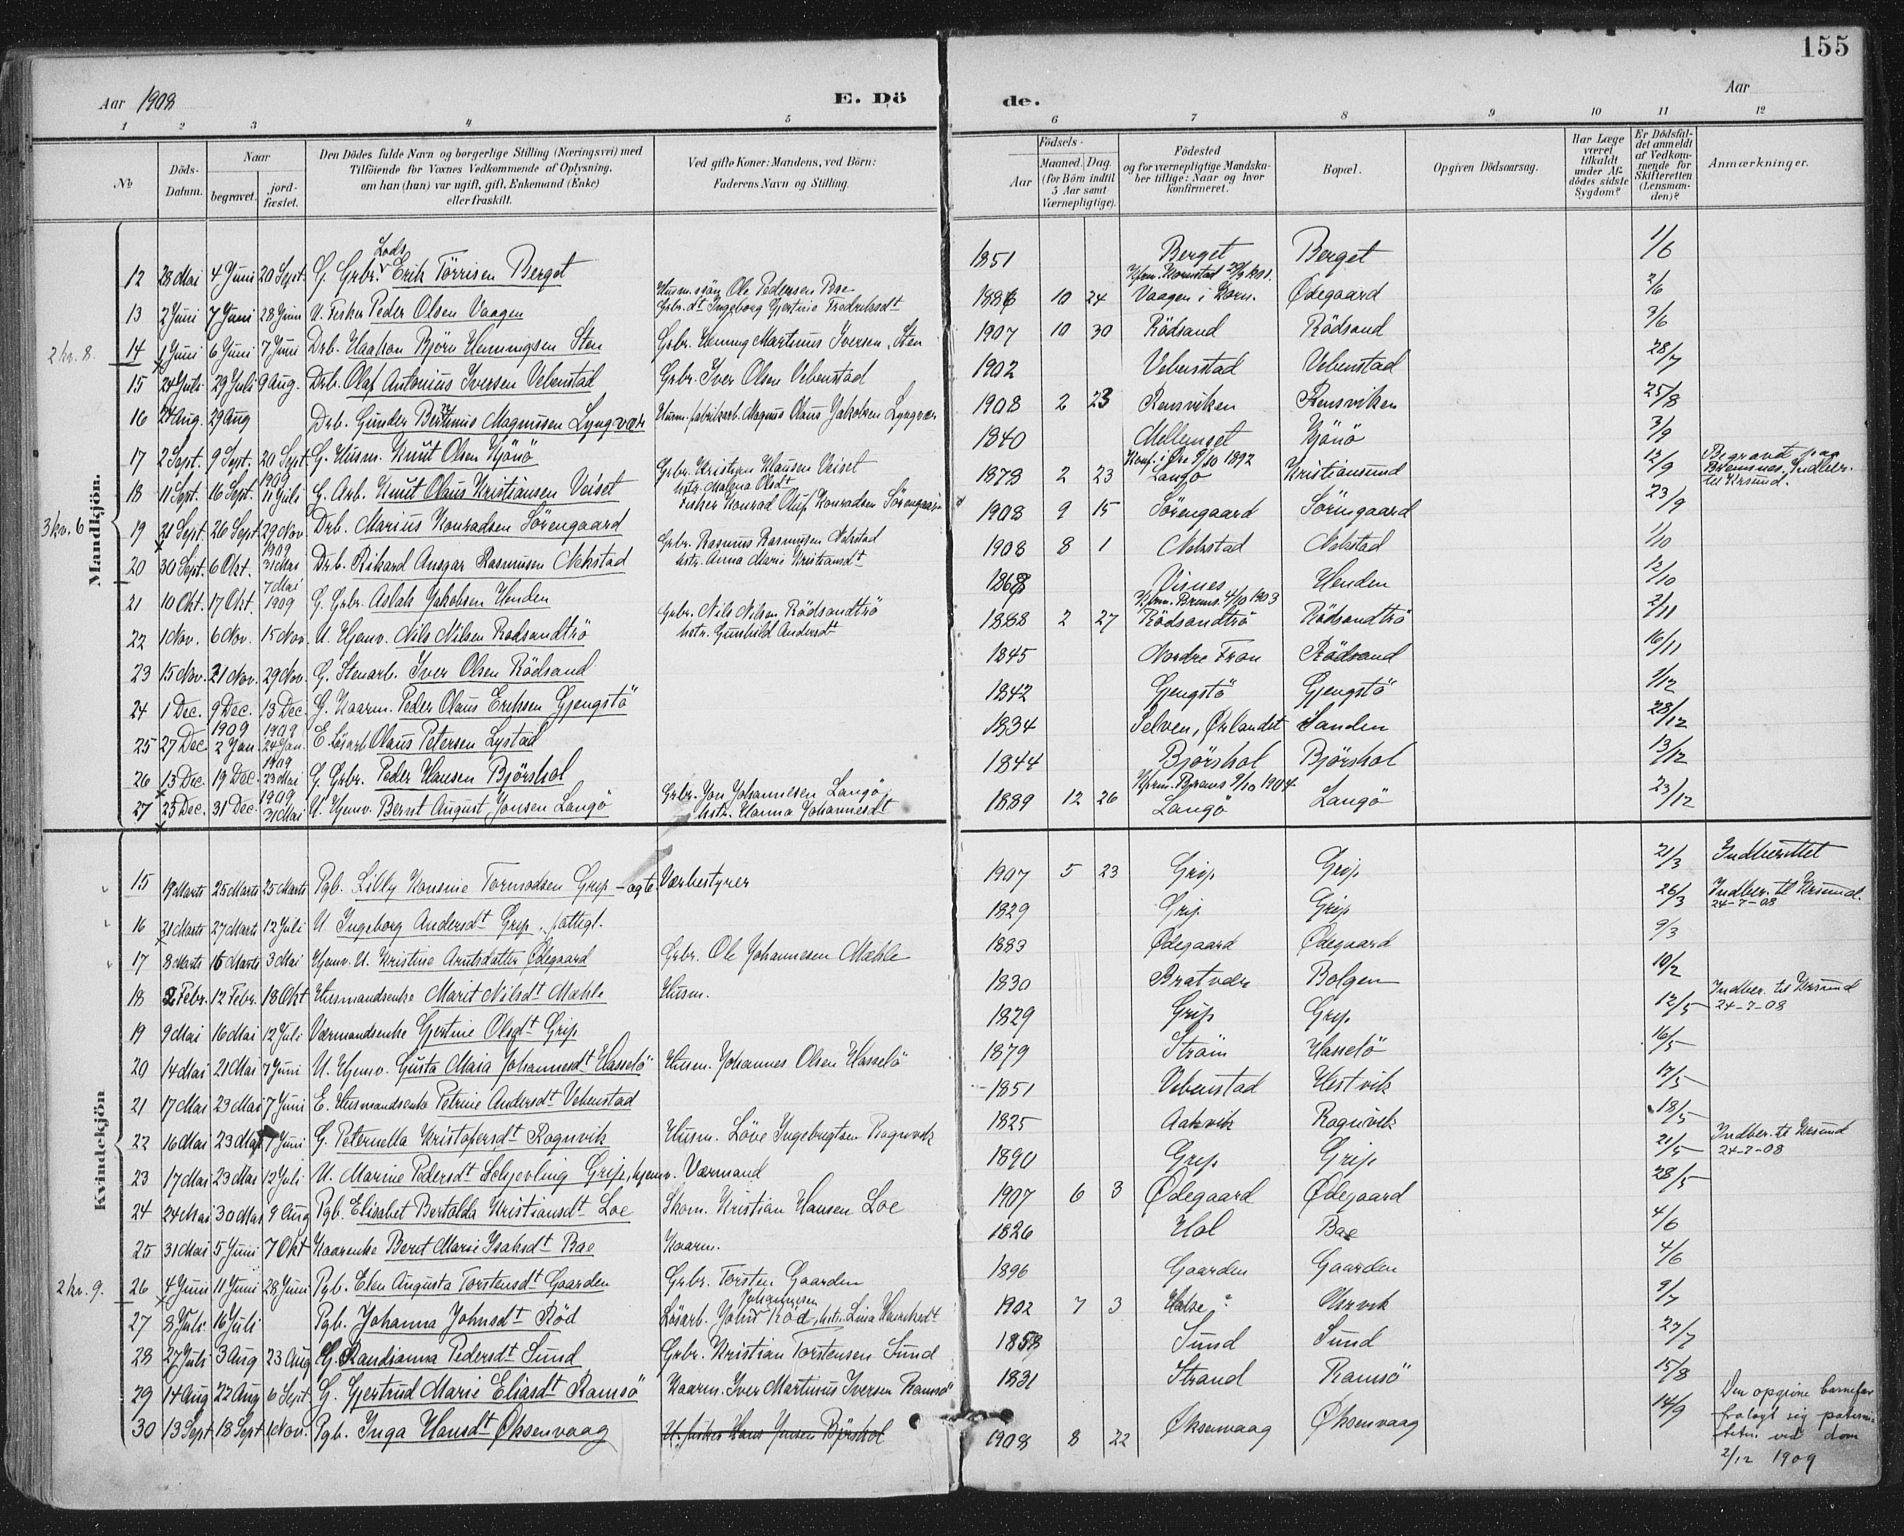 155
Aar 1908
E. Dö
de.
Aar
1 2 3 4 5 6 7 8 9 10 11 12
№
Döds-Datum.
Naar
begravet.
jord-fæstet.
Den Dödes fulde Navn og borgerlige Stilling (Næringsvei) med
Tilföiende for Voxnes Vedkommende af Oplysning,
om han (hun) var ugift, gift, Enkemand (Enke)
eller fraskilt.
Ved gifte Koner: Mandens, ved Börn:
Faderens Navn og Stilling.
Födsels-
Aar
Maaned. Dag.
(for Börn indtil
5 Aar samt
Værnepligtige).
Födested
og for værnepligtige Mandska-
ber tillige: Naar og hvor
konfirmeret.
Bopæl.
Opgiven Dödsaarsag.
Har Læge
været
tilkaldt
under Af-
dödes sidste
Sygdom?
Er Dödsfal-
det anmeldt
af Vedkom-
mende for
Skifteretten
(Lensman-
den)?
Anmærkninger.
Mandkjön.
12 28 Mai 4 Juni 20 Sept. G. Grbr. Lods Erik Törrisen Berget 1851 Berget Berget 1/6
13 2 Juni 7 Juni 28 Juni U. Fisker Peder Olsen Vaagen Husm.sön Ole Pedersen Bae Grbr.dt Ingeborg Gjertine Fredriksdt 1886 10 24 Kfm. Kornstad 1901. Vaagen i Korn. Ødegaard 2/6
2 kv. 8.
14 1 Juni 6 Juni 7 Juni Drb. Haakon Björn Henningsen Sten Grbr. Henning Martinus Iversen, Sten 1907 10 30 Rödsand Rödsand 3/6
15 24 Juli 29 Juli 9 Aug. Drb. Olaf Antonius Iversen Vebenstad Grbr. Iver Olsen Vebenstad 1902 Vebenstad Vebenstad 28/7
16 24 Aug. 29 Aug Drb. Gunder Bertinus Magnusen Lyngvær Husm. fabrikarb. Magnus Olaus Jakobsen Lyngvær 1908 2 23 Rensviken Rensviken 25/8
17 2 Sept. 9 Sept. 20 Sept. G. Husm. Knut Olsen Kjönö 1840 Mellemset Kjönö 3/9
18 11 Sept. 16 Sept. 1909 11 Juli G. Arb. Knut Olaus Kristiansen Veiset Grbr. Kristian Klausen Veiset hstr. Malena Olsdt 1878 2 23 Konf. i Øre 9/10 1892 Langö Kristiansund 12/9 Begravet paa Bremsnes. Indber. til Krsund.
3 kv. 6
19 21 Sept. 26 Sept. 29 Nov. Drb. Marius Konradsen Sörengaard Fisker Konrad Oluf Konradsen Sörengaard 1908 9 15 Sörengaard Söringaard 23/9
20 30 Sept. 6 Okt. 1909 31 Mai Drb. Rikard Ansgar Rasmusen Nekstad Grbr. Rasmus Rasmusen Nekstad hstr. Anna Marie Kristiansdt 1908 8 1 Nekstad Nekstad 1/10
21 10 Okt. 17 Okt. 7 Mai 1909 G. Grbr. Aslak Jakobsen Henden 1868 Visnes Henden 12/10
22 1 Nov. 6 Nov. 15 Nov U. Hjemv. Nils Nilsen Rödsandtrö Grbr. Nils Nilsen Rödsandtrö hstr. Gunhild Andersdt 1888 2 27 Kfrm. Brems. 4/10 1903 Rödsandtrö Rödsandtrö 2/11
23 15 Nov. 21 Nov. 29 Nov. G. Stenarb. Iver Olsen Rödsand 1845 Nordre Fron Rödsand 16/11
24 1 Dec. 9 Dec. 13 Dec. G. Kaarm. Peder Olaus Eriksen Gjengstö 1842 Gjengstö Gjengstö 2/12
25 27 Dec. 1909 2 Jan. 1909 24 Jan. E. Lösarb Olaus Petersen Lystad 1834 Selven, Ørlandet Sanden 28/12
26 13 Dec. 19 Dec. 1909 23 Mai G. Grbr. Peder Hansen Björshol 1844 Björshol Björshol 13/12
27 25 Dec. 31 Dec. 1909 31 Mai U. Hjemv. Bernt August Jonsen Langö Grbr. Jon Johannesen Langö, hstr. Hanna Johannesdt 1889 12 26 Kfrm. Brems 9/10 1904 Langö Langö 23/12
Kvindekjön
15 19 Marts 25 Marts 25 Marts Pgb. Lilly Konsnie Tormodsen Grip - ægte Værbestyrer 1907 5 23 Grip Grip 21/3 Indberettet
16 21 Marts 27 Marts 12 Juli U Ingeborg Andersdt Grip, fattigl. 1829 Grip Grip 26/3 Indber. til Krsund. 24-7-08
17 8 Marts 15 Marts 3 Mai Hjemv. U. Kristine Arntsdatter Ødegaard Grbr. Ole Johannesen Mæhle 1883 Ødegaard Ødegaard 9/3
18 2 Febr. 12 Febr. 18 Okt Husmandsenke Marit Nilsdt Mæhle Husm. 1830 Bratvær Bolgen 10/2
19 9 Mai 16 Mai 12 Juli Værmandsenke Gjertine Olsdt Grip 1829 Grip Grip 12/5 Indber. til Krsund 24-7-08
20 14 Mai 21 Mai 7 Juni U. Hjemv. Gusta Maia Johannesdt Hasselö Husm. Johannes Olsen Hasselö 1879 Ström Hasselö 16/5
21 17 Mai 23 Mai 7 Juni E. Husmandsenke Petrine Andersdt Vebenstad 1851 Vebenstad Hestvik 17/5
22 16 Mai 23 Mai 7 Juni G. Peternella Kristofersdt Rognvik Husm. Löve Ingebrigtsen Rognvik 1825 Aakvik Rognvik 18/5
23 17 Mai 23 Mai 12 Juli U. Marine Pedersdt Schjevling Grip, hjemv. Værmand 1890 Grip Grip 21/5 Indber. til Krsund 24-7-08
24 24 Mai 30 Mai 9 Aug Pgb. Elisabet Bertalda Kristiansdt Loe Skom. Kristian Hansen Loe 1907 6 3 Ødegaard Ødegaard 28/5
25 31 Mai 5 Juni 7 Okt Kaarenke Berit Marie Isaksdt Bae Kaarm. 1826 Hol Bae 4/6
2 kv. 9.
26 4 Juni 11 Juni 28 Juni Pgb. Elen Augusta Torstensdt Gaarden Grbr. Torsten Gaarden 1896 Gaarden Gaarden 4/6
27 8 Juli 16 Juli Pgb. Johanna Johnsdt Röd Lösarb. John Johannesen Röd, hstr. Lina 1902 7 3 Halse? 9/7
28 27 Juli 3 Aug 23 Aug G. Randianna Pedersdt Sund Grbr. Kristian Torstensen Sund 1858 Sund Sund 27/7
29 14 Aug 22 Aug 6 Sept. G. Gjertrud Marie Eliasdt Ramsö Kaarm. Iver Martinus Iversen Ramsö 1831 Strand Ramsö 15/8
30 13 Sept 18 Sept 1 Nov. Pgb. Inga Hansdt Øksenvaag U. fisker Hans Jensen Björshol 1908 8 22 Øksenvaag Øksenvaag 14/9 Den opgivne barnefar fralagt sig paterni-teten ved dom 2/12 1909